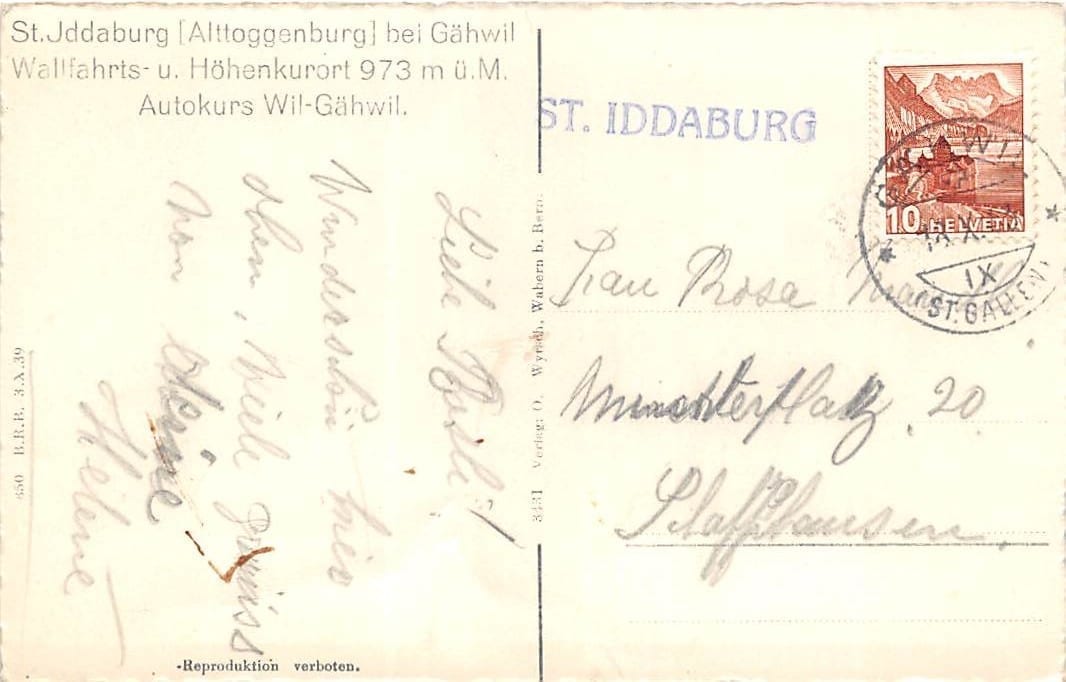 St.Jddaburg [Alttoggenburg] bei Gähwil
Wallfahrts- u. Höhenkurort 973 m ü.M.
Autokurs Wil-Gähwil.
ST. IDDABURG
10 HELVETIA
GÄHWIL
IX
ST. GALLEN
Frau Rosa
Münsterplatz 20
Schaffhausen.
Wunderschön hier
oben, Viele grüss
von
Helene
850 B.R.B. 3.X.39
3431 Verlag: O. Wyrsch, Wabern b. Bern.
-Reproduktion verboten.